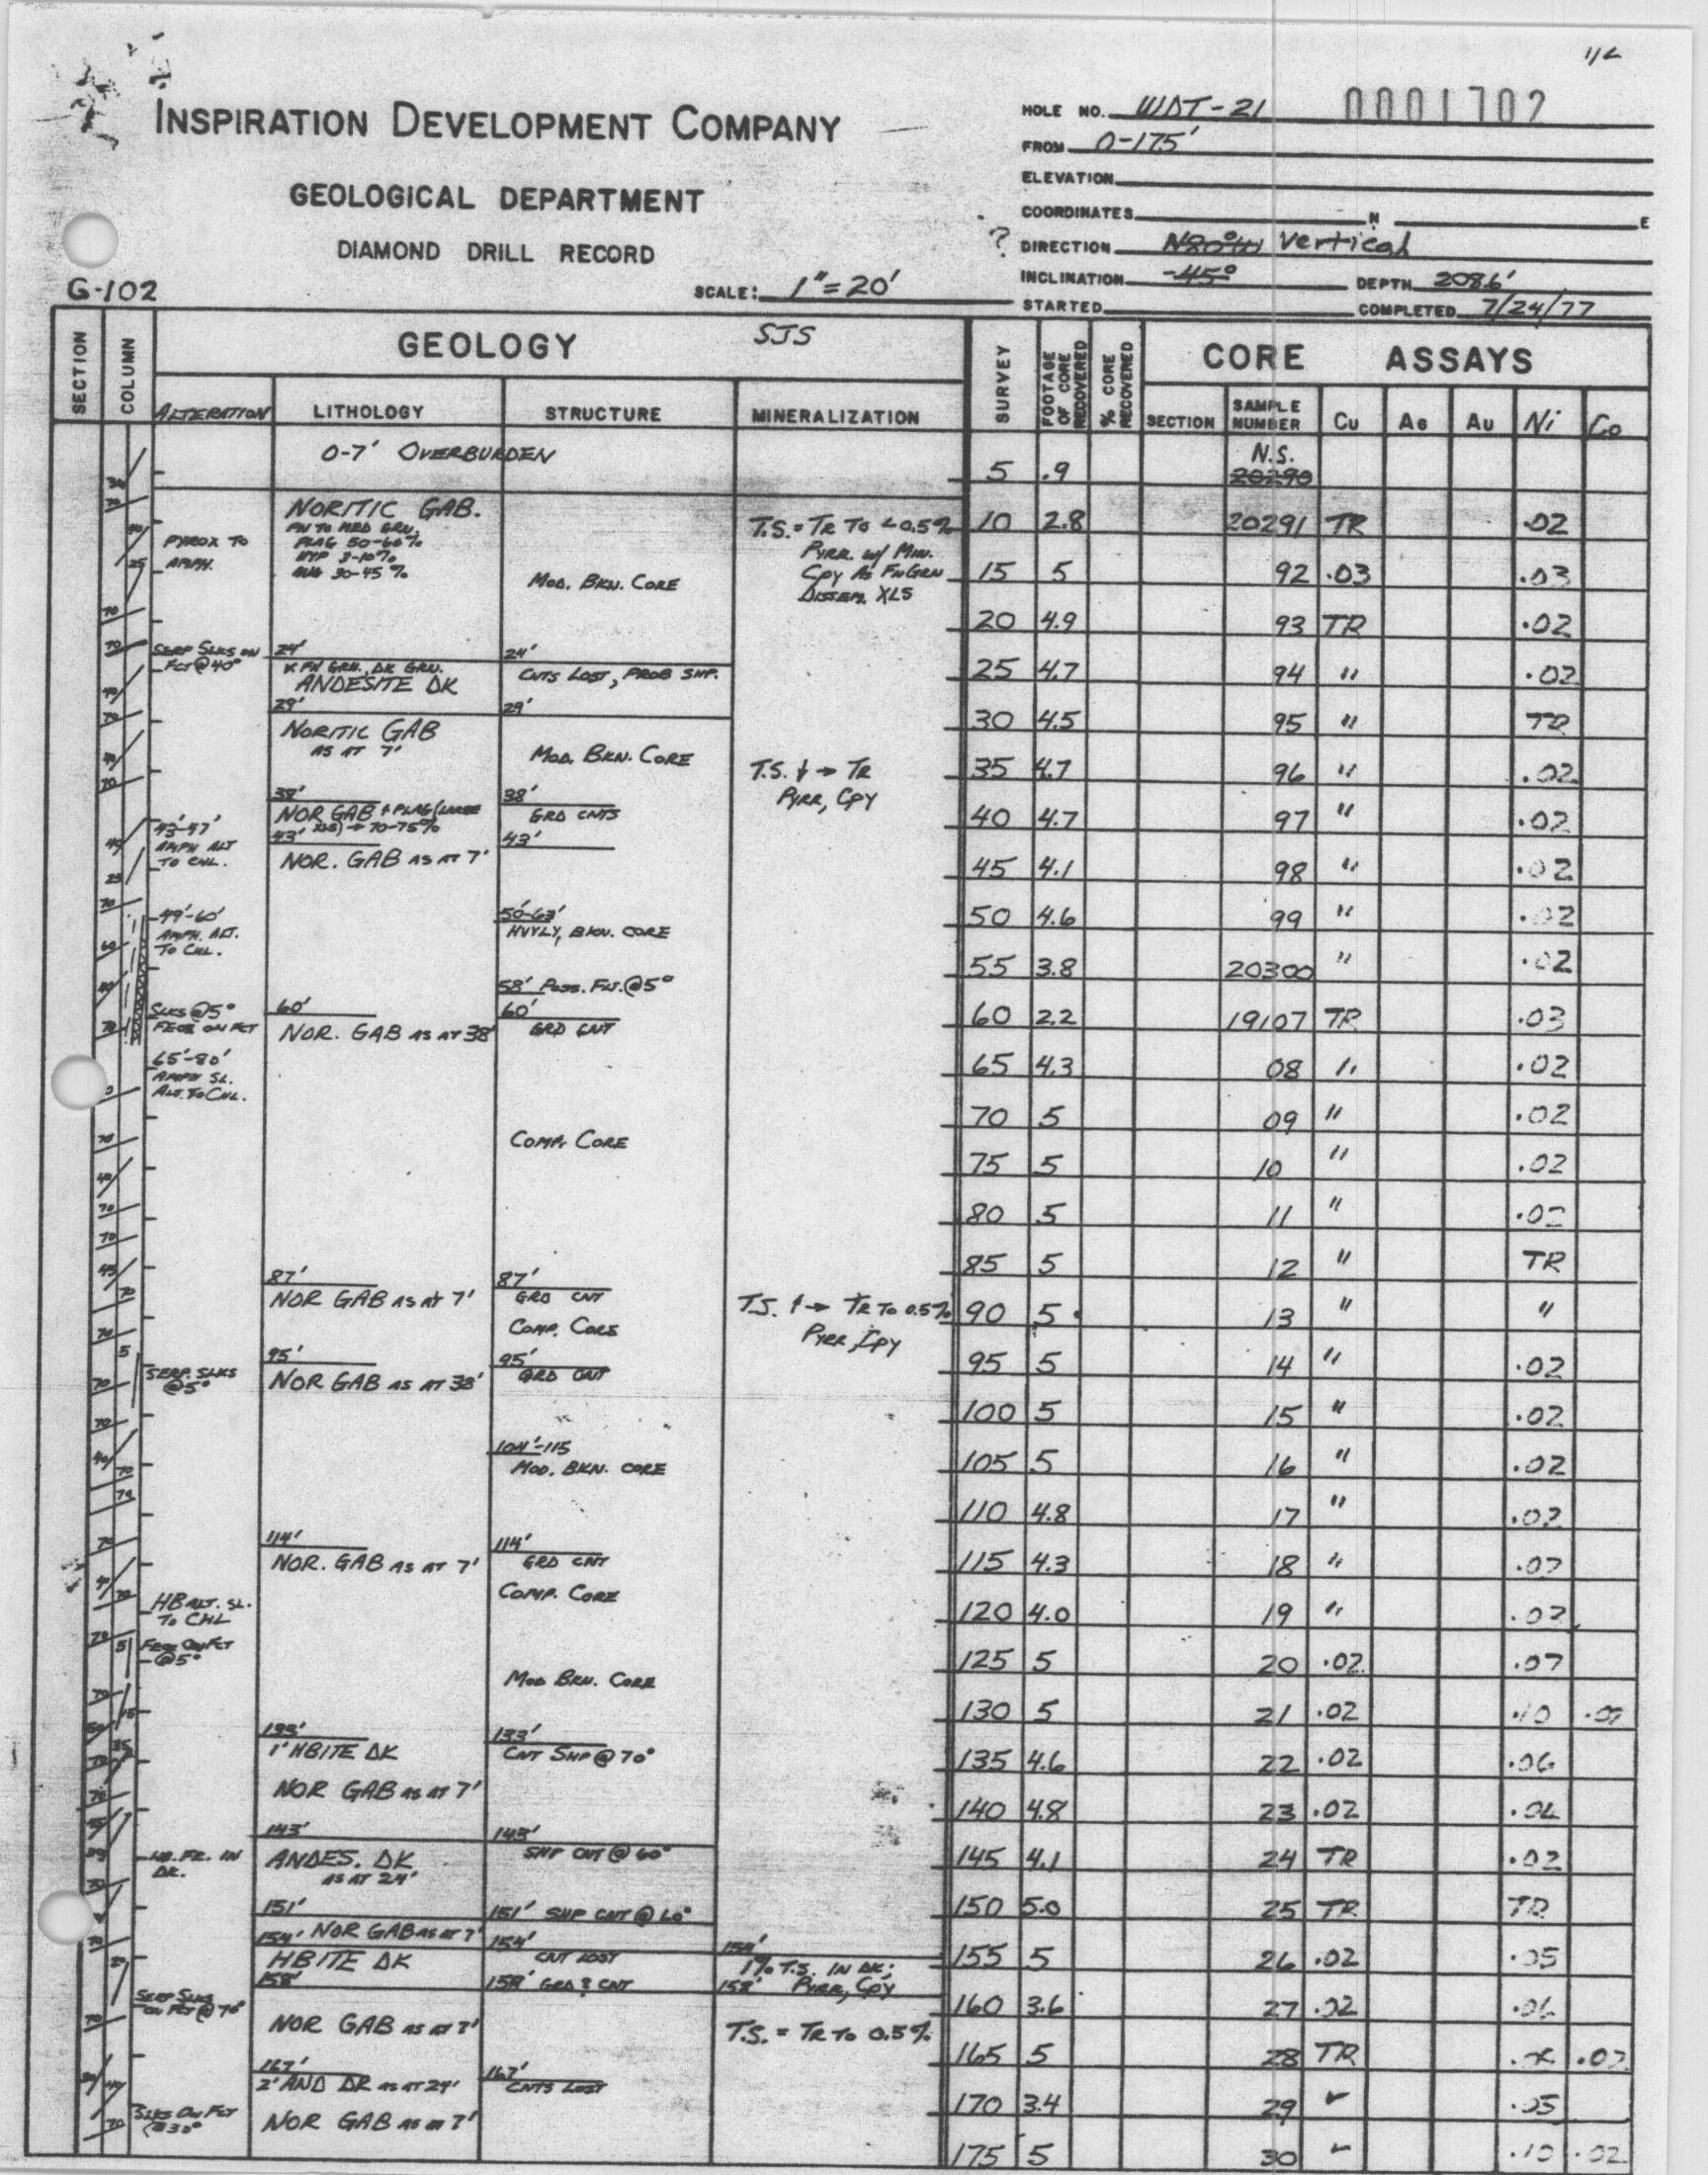 1/2
INSPIRATION DEVELOPMENT COMPANY
GEOLOGICAL DEPARTMENT
DIAMOND DRILL RECORD
G-102
SCALE: 1"=20'
HOLE NO. WDT-21 0001702
FROM 0-175'
ELEVATION
COORDINATES N E
? DIRECTION N20°W Vertical
INCLINATION -45° DEPTH 2086'
STARTED COMPLETED 7/24/77
SECTION COLUMN GEOLOGY SJS SURVEY FOOTAGE OF CORE RECOVERED % CORE RECOVERED CORE ASSAYS
ALTERATION LITHOLOGY STRUCTURE MINERALIZATION SECTION SAMPLE NUMBER Cu AG AU Ni Co
0-7' OVERBURDEN
NORITIC GAB.
FN TO MED GRN,
PLAG 50-60%
HYP 3-10%
AUG 30-45%
PYROX TO
AMPH.
MOD. BKN. CORE
T.S. = TR TO <0.5%
PYRR. w/ MIN.
CPY AS FN GRN
DISSEM. XLS
SERP SLKS ON
FCT @ 40°
24'
V. FN GRN., DK GRN.
ANDESITE DK
29'
24'
CNTS LOST, PROB SHP.
29'
NORITIC GAB
AS AT 7'
MOD. BKN. CORE
T.S. ↓ → TR
PYRR, CPY
38'
NOR GAB + PLAG (LARGE
XLS) → 70-75%
38'
GRD CNTS
43'
43'
NOR. GAB AS AT 7'
43'-47'
AMPH ALT
TO CHL.
49'-60'
AMPH. ALT.
TO CHL.
50'-63'
HVYLY. BKN. CORE
58' POSS. FLT. @ 5°
SLKS @ 5°
FEOX ON FCT
60'
NOR. GAB AS AT 38'
60'
GRD CNT
65'-80'
AMPH SL.
ALT. TO CHL.
COMP. CORE
87'
NOR GAB AS AT 7'
87'
GRD CNT
COMP. CORE
T.S. ↑ → TR TO 0.5%
PYRR, CPY
SERP. SLKS
@ 5°
95'
NOR GAB AS AT 38'
95'
GRD CNT
104'-115
MOD. BKN. CORE
114'
NOR. GAB AS AT 7'
114'
GRD CNT
COMP. CORE
HB ALT. SL.
TO CHL
FEOX ON FCT
@ 5°
MOD BKN. CORE
133'
1' HBITE DK
133'
CNT SHP @ 70°
NOR GAB AS AT 7'
143'
ANDES. DK
AS AT 24'
143'
SHP CNT @ 60°
151'
151' SHP CNT @ 60°
154' NOR GAB AS AT 7'
HBITE DK
158'
154'
CNT LOST
158' GRD? CNT
154'
1% T.S. IN DK;
158' PYRR, CPY
SERP SLKS
ON FCT @ 70°
NOR GAB AS AT 7'
T.S. = TR TO 0.5%
167'
2' AND DK AS AT 24'
167'
CNTS LOST
SLKS ON FCT
@ 30°
NOR GAB AS AT 7'
5 .9 N.S. 20290
10 2.8 20291 TR .02
15 5 92 .03 .03
20 4.9 93 TR .02
25 4.7 94 " .02
30 4.5 95 " TR
35 4.7 96 " .02
40 4.7 97 " .02
45 4.1 98 " .02
50 4.6 99 " .02
55 3.8 20300 " .02
60 2.2 19107 TR .03
65 4.3 08 " .02
70 5 09 " .02
75 5 10 " .02
80 5 11 " .02
85 5 12 " TR
90 5 13 " "
95 5 14 " .02
100 5 15 " .02
105 5 16 " .02
110 4.8 17 " .02
115 4.3 18 " .02
120 4.0 19 " .02
125 5 20 .02 .07
130 5 21 .02 .10
135 4.6 22 .02 .06
140 4.8 23 .02
145 4.1 24 TR .02
150 5.0 25 TR TR
155 5 26 .02 .05
160 3.6 27 .02 .06
165 5 28 TR .02
170 3.4 29 " .05
175 5 30 " .10 .02